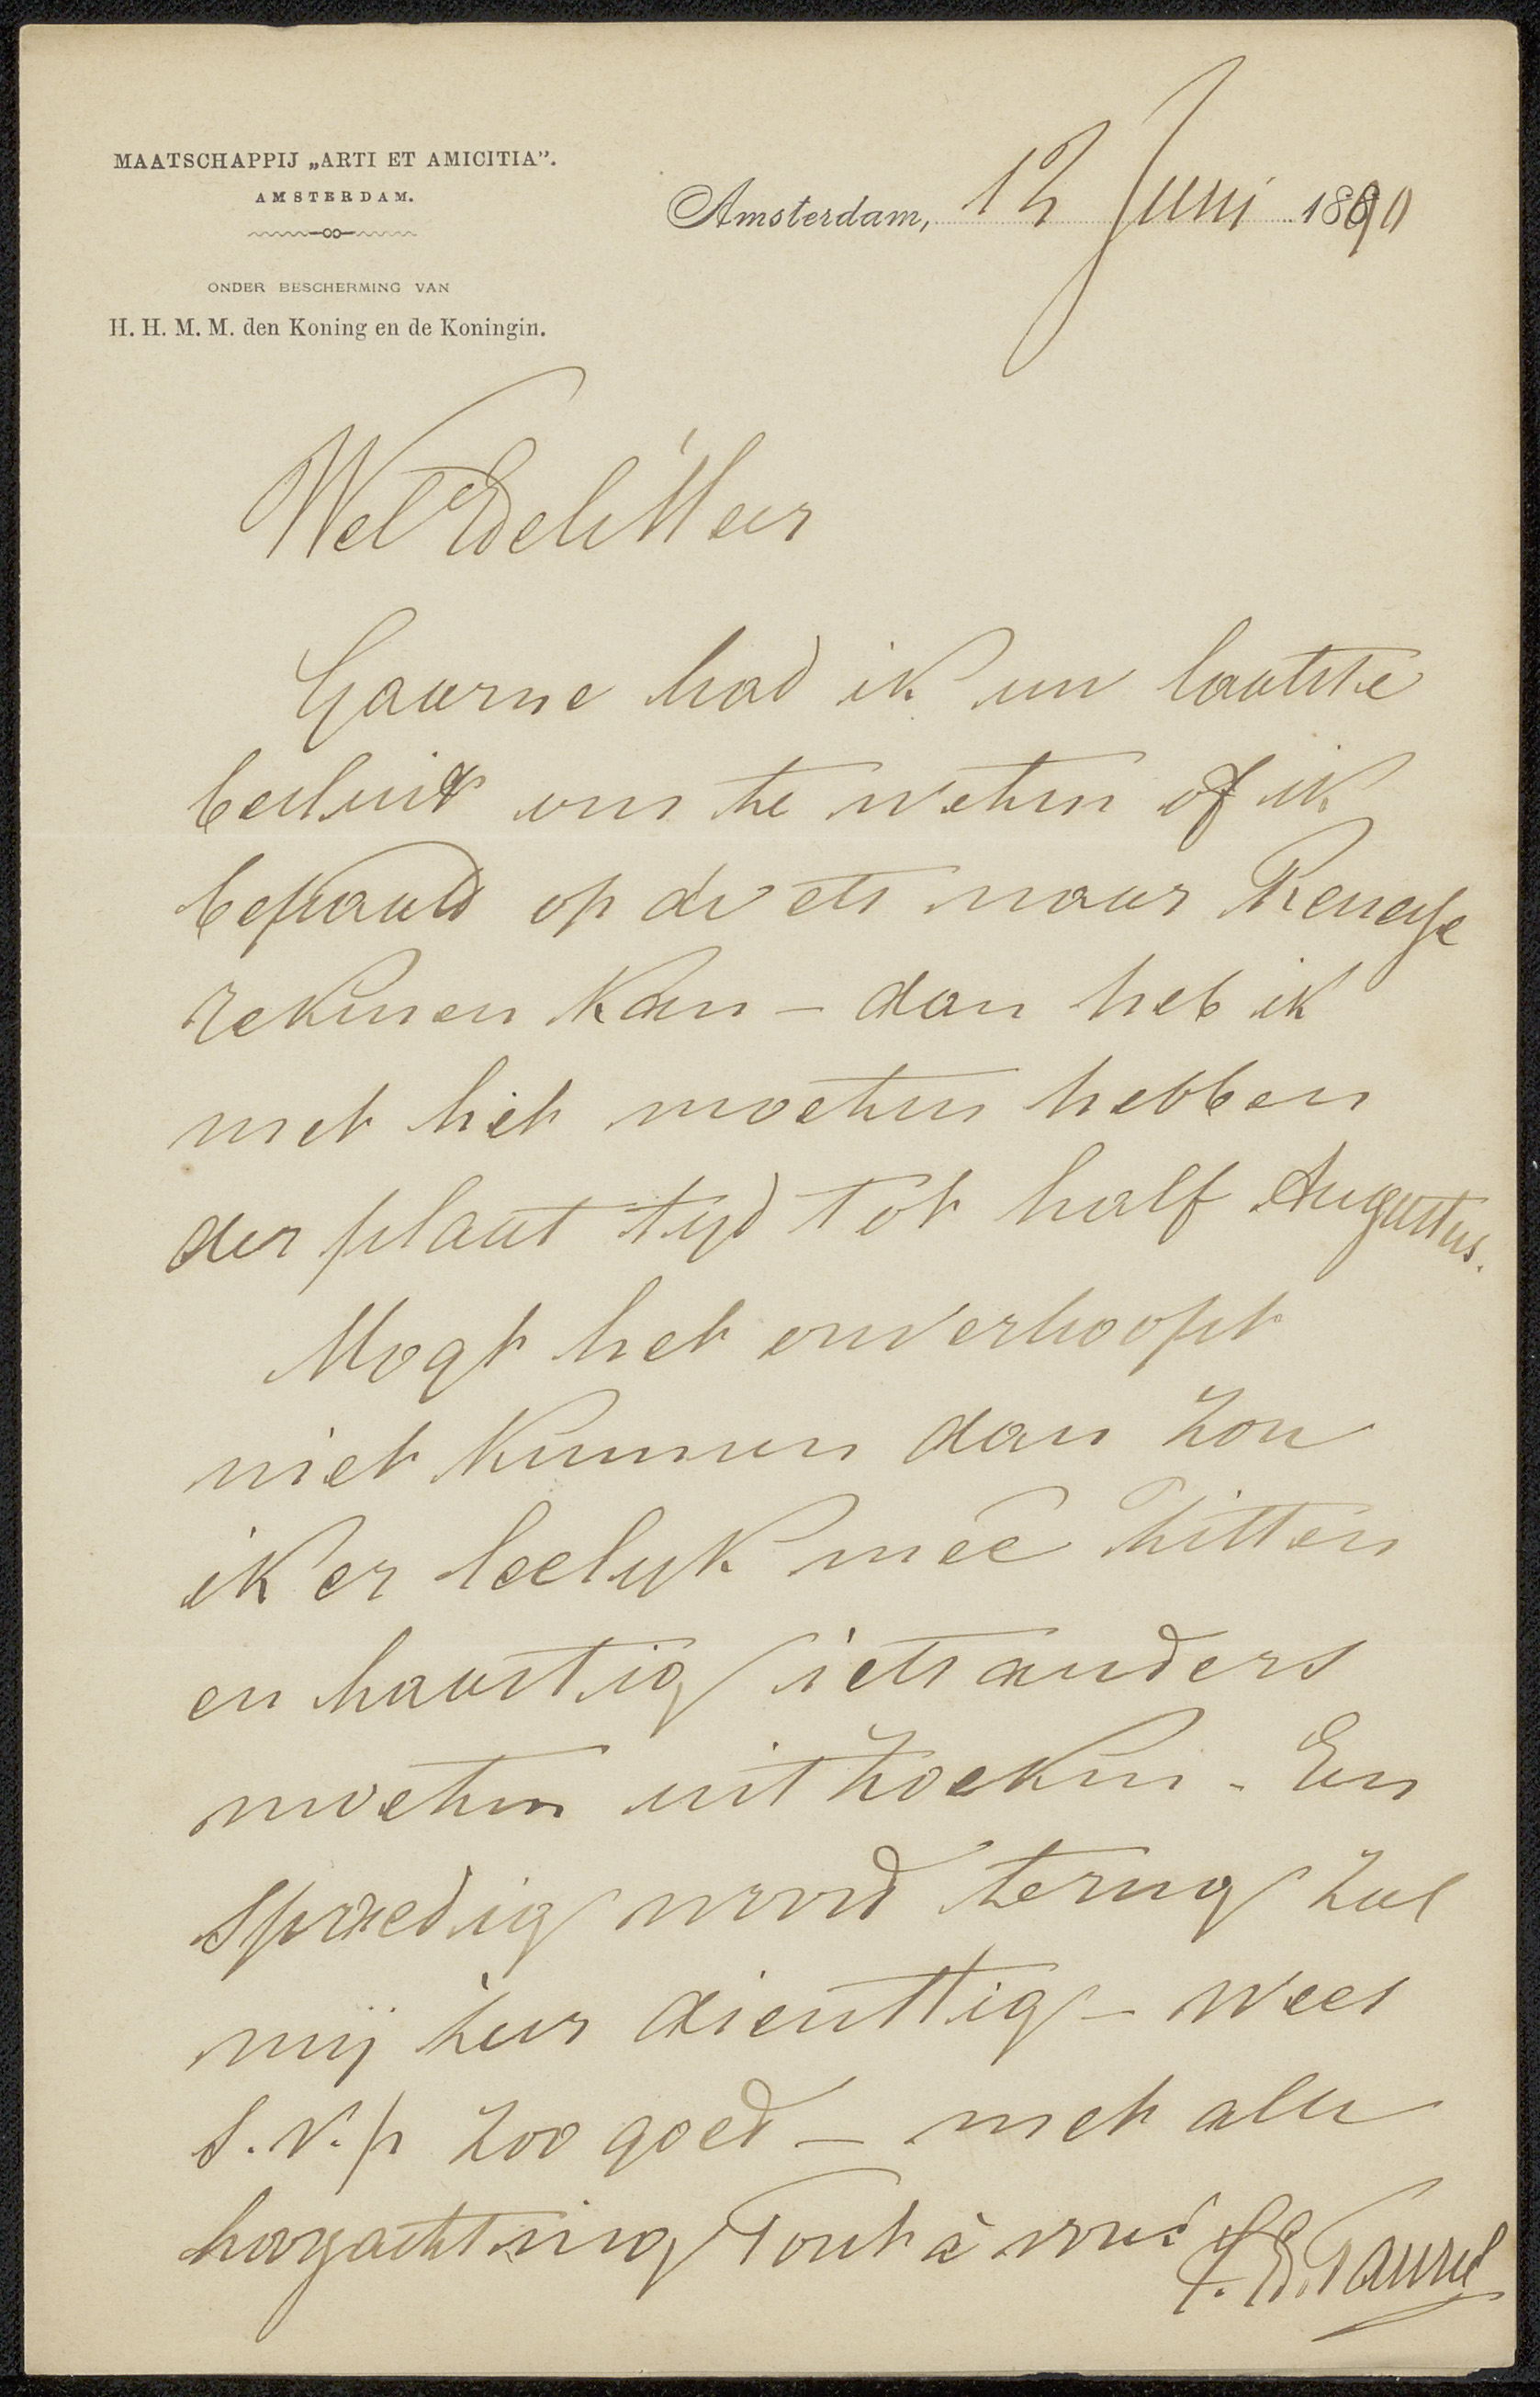 MAATSCHAPPIJ „ARTI ET AMICITIA”.
AMSTERDAM.
ONDER BESCHERMING VAN
H. H. M. M. den Koning en de Koningin.
Amsterdam, 12 Juni 1890
Wel Edele Heer
Gaarne had ik uw laatste
besluit om te weten of ik
bepaald op de ets naar
rekenen kan – dan heb ik
met het moeten hebben
der plaat tyd tot half Augustus.
Mogt het onverhoopt
niet kunnen dan zou
ik er leelyk meê zitten
en haastig iets anders
moeten uitzoeken. Een
spoedig woord terug zal
mij zeer dienstig – wees
s.v.p zoo goed – met alle
hoogachting Tout à vous C. E. Taurel